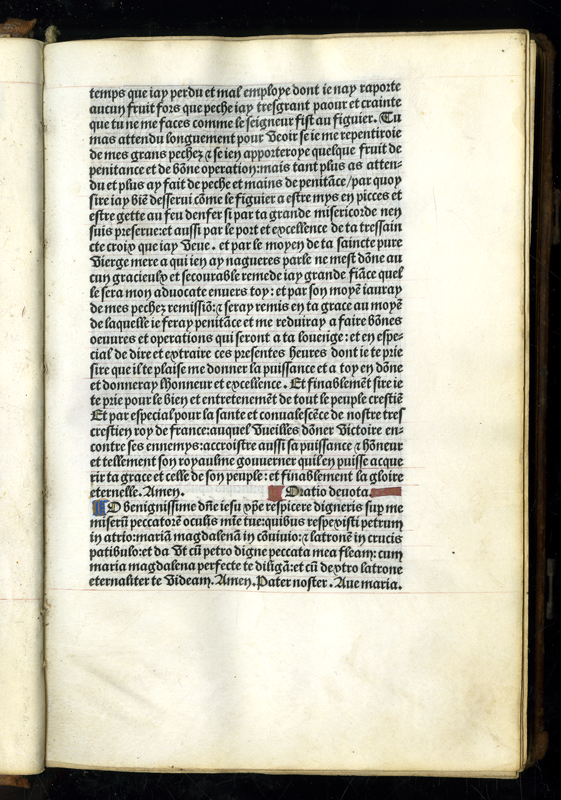 temps que iay perdu et mal employe dont ie nay raporte
aucun fruit fors que peche iay tresgrant paour et crainte
que tu ne me faces comme le seigneur fist au figuier. Tu
mas attendu longuement pour veoir se ie me repentiroie
de mes grans pechez ⁊ se ien apporteroye quelque fruit de
penitance et de bõne operation:mais tant plus as atten-
du et plus ay fait de peche et mains de penitãce/par quoy
sire iay biẽ desserui cõme le figuier a estre mys en pieces et
estre gette au feu denfer si par ta grande misericorde nen
suis preserue:et aussi par le port et excellence de ta tressain
cte croix que iay veue. et par le moyen de ta saincte pure
vierge mere a qui ien ay nagueres parle ne mest dõne au
cun gracieulx et secourable remede iay grande fiãce quel
le sera mon aduocate enuers toy: et par son moyẽ iauray
de mes pechez remissiõ:⁊ seray remis en ta grace au moyẽ
de laquelle ie feray penitãce et me reduiray a faire bõnes
oeuures et operations qui seront a ta louenge: et en espe-
cial de dire et extraire ces presentes heures dont ie te prie
sire que il te plaise me donner la puissance et a toy en dõne
et donneray lhonneur et excellence. Et finablemẽt sire ie
te prie pour le bien et entretenemẽt de tout le peuple crestiẽ
Et par especial pour la sante et conualescẽce de nostre tres
crestien roy de france:auquel vueilles dõner victoire en-
contre ses ennemys:accroistre aussi sa puissance ⁊ hõneur
et tellement son royaulme gouuerner quil en puisse acque
rir ta grace et celle de son peuple: et finablement la gloire
eternelle. Amen. Oratio deuota.
O benignissime dñe iesu xp̃e respicere digneris sup me
miserũ peccatorẽ oculis mie tue:quibus respexisti petrum
in atrio:mariã magdalenã in cõuiuio:⁊ latronẽ in crucis
patibulo:et da vt cũ petro digne peccata mea fleam: cum
maria magdalena perfecte te diligã:et cũ dextro latrone
eternaliter te videam. Amen. Pater noster. Aue maria.